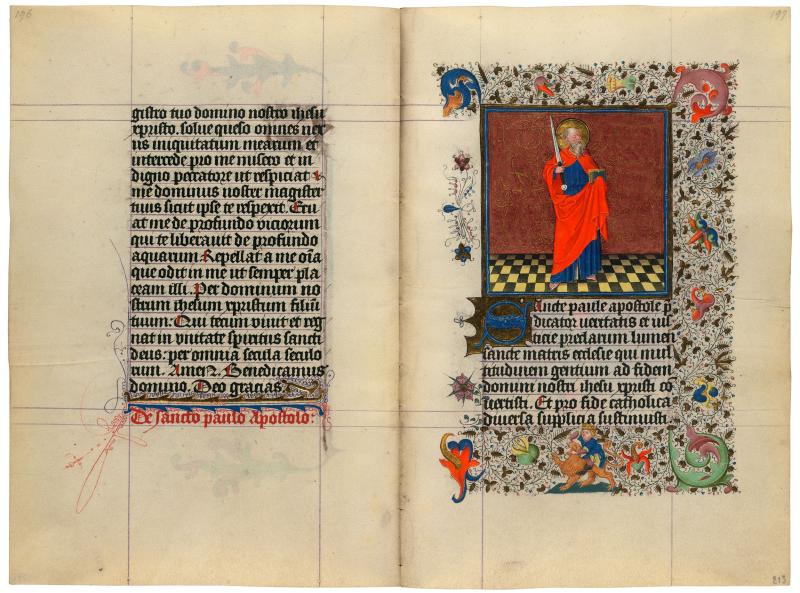 196
gistro tuo domino nostro ihesu
xpristo. solue queso omnes nex
us iniquitatum mearum et
intercede pro me misero et in
digno peccatore ut respiciat
me dominus noster magister
tuus sicut ipse te respexit. Eru
at me de profundo viciorum
qui te liberavit de profundo
aquarum Repellat a me oīa
que odit in me ut semper pla
ceam illi. Per dominum no
strum ihesum xpristum filiū
tuum. Qui tecum vivit et reg
nat in vnitate spiritus sancti
deus: per omnia secula seculo
rum. Amen. Benedicamus
domino. Deo gracias.
De sancto paulo apostolo:
197
Sancte paule apostole p̄
dicator veritatis et
preclarum lumen
sancte matris ecclesie qui mul
titudinem gentium ad fidem
domini nostri ihesu xpristi co
vertisti. Et pro fide catholica
diversa supplicia sustinuisti.
213